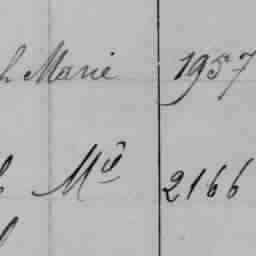 h Marie 1957
Mel 2166